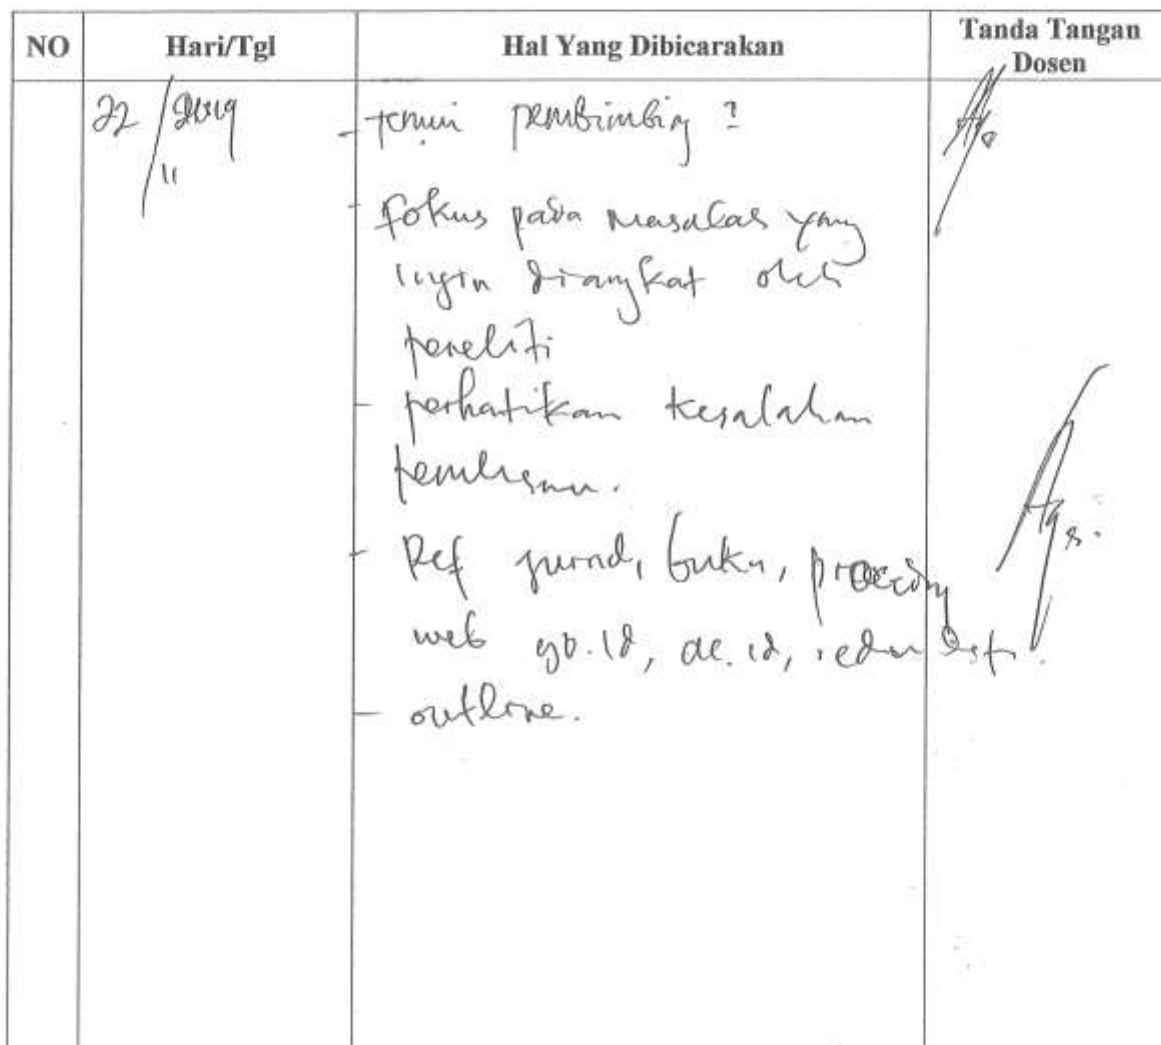 NO Hari/Tgl Hal Yang Dibicarakan Tanda Tangan
Dosen
22/11 2019 - temui pembimbing ?
- fokus pada masalah yang
ingin diangkat oleh
peneliti
- perhatikan kesalahan
penulisan.
- Ref jurnal, buku, proceeding
web go.id, ac.id,
- outline.